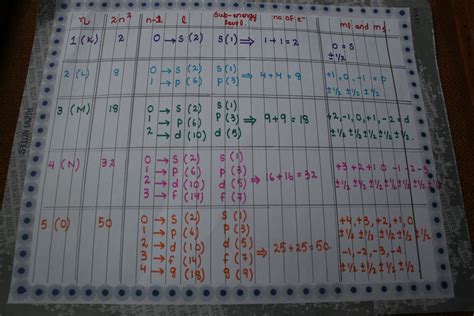 n 2n² n-1 l Sub-energy level no of e⁻ ml and ms
1 (K) 2 0 → s (2) s (1) ⇒ 1+1=2 0 = s
±½
2 (L) 8 0 → s (2) s (1) ⇒ 4+4=8 +1, 0, -1 = p
1 → p (6) p (3) ±½ ±½ ±½
3 (M) 18 0 → s (2) s (1) ⇒ 9+9=18 +2, -1, 0, +1, -2 = d
1 → p (6) p (3) ±½ ±½ ±½ ±½ ±½
2 → d (10) d (5)
4 (N) 32 0 → s (2) s (1) ⇒ 16+16=32 +3 +2 +1 0 -1 -2 -3
1 → p (6) p (3) ±½ ±½ ±½ ±½ ±½ ±½ ±½
2 → d (10) d (5)
3 → f (14) f (7)
5 (O) 50 0 → s (2) s (1) ⇒ 25+25=50. +4, +3, +2, +1, 0
1 → p (6) p (3) ±½ ±½ ±½ ±½ ±½
2 → d (10) d (5) -1, -2, -3, -4
3 → f (14) f (7) ±½ ±½ ±½ ±½
4 → g (18) g (9)